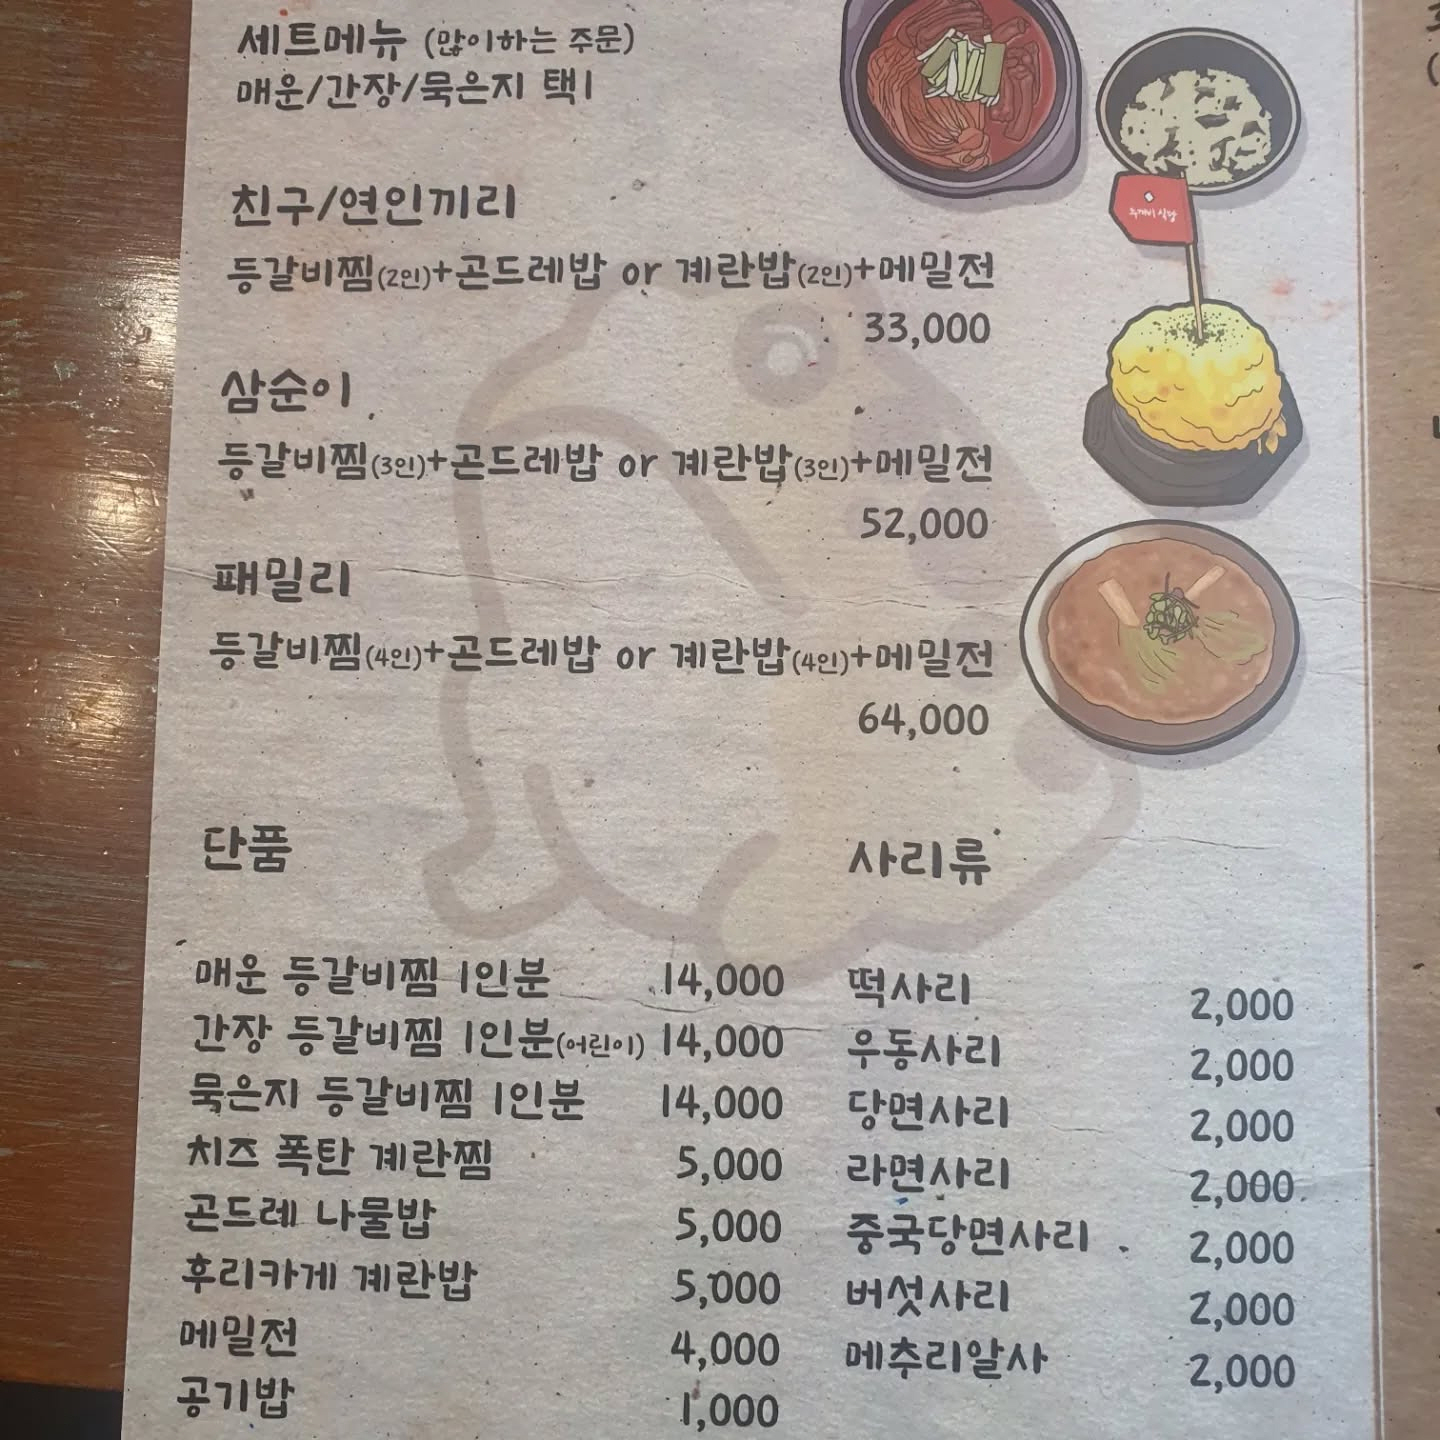 세트메뉴 (많이하는 주문)
매운/간장/묵은지 택1
친구/연인끼리
등갈비찜(2인)+곤드레밥 or 계란밥(2인)+메밀전
33,000
삼순이
등갈비찜(3인)+곤드레밥 or 계란밥(3인)+메밀전
52,000
패밀리
등갈비찜(4인)+곤드레밥 or 계란밥(4인)+메밀전
64,000
단품
매운 등갈비찜 1인분 14,000
간장 등갈비찜 1인분(어린이) 14,000
묵은지 등갈비찜 1인분 14,000
치즈 폭탄 계란찜 5,000
곤드레 나물밥 5,000
후리카게 계란밥 5,000
메밀전 4,000
공기밥 1,000
사리류
떡사리 2,000
우동사리 2,000
당면사리 2,000
라면사리 2,000
중국당면사리 2,000
버섯사리 2,000
메추리알사 2,000